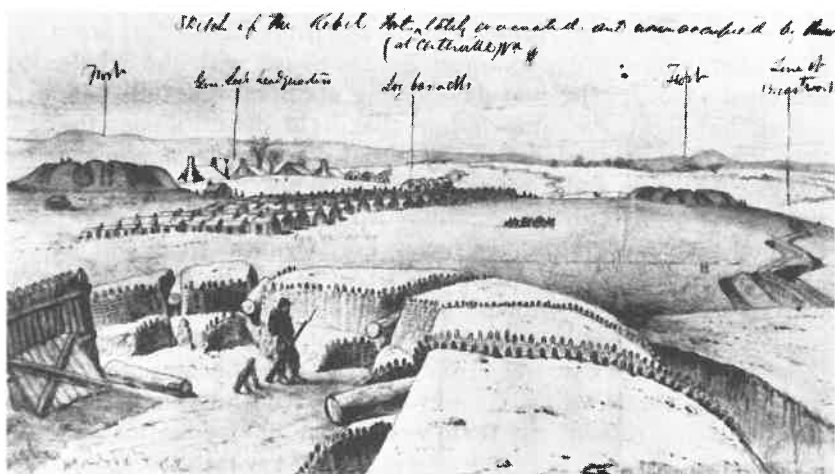 Sketch of the Rebel Fort, lately evacuated and now occupied by
(at Centreville, Va
Fort
Gen. headquarters
Log barracks
Fort
Line of
breastworks